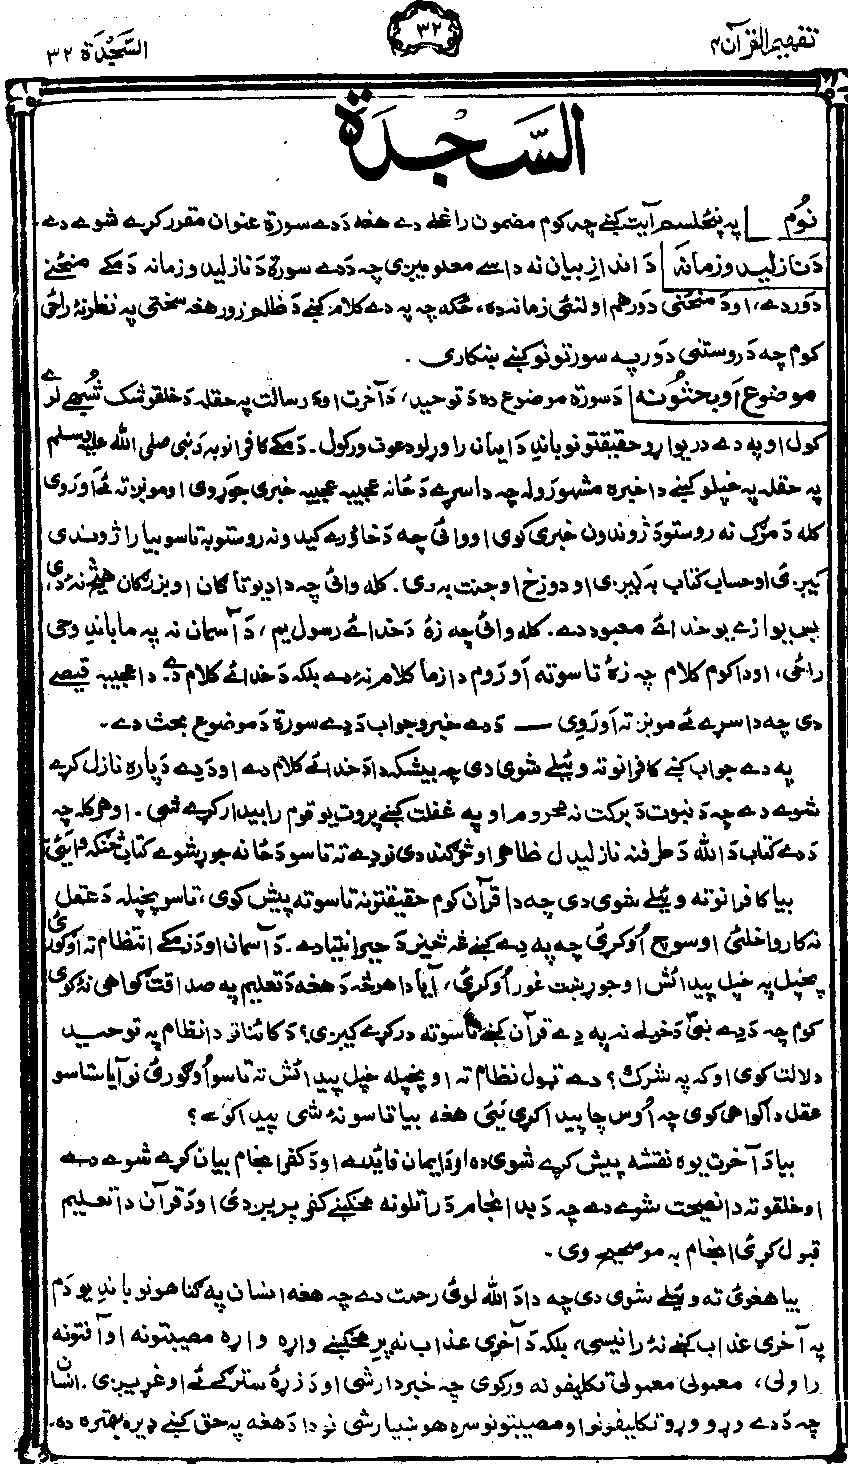 تفهیم القرآن ۴
۳۲
السَّجْدَة ۳۲
السَّجْدَة
نُوم په پنځلسم آیت کښے چه کوم مضمون راغلے دے هغه دَ دے سورة عنوان مقرر کړے شوے دے
دَ نازلیدو زمانه دَ اندازِ بیان نه داسے معلومیږی چه دَ دے سورة دَ نازلیدو زمانه دَ مکے منځنے
دَور دے، او دَ منځنی دَور هم اولنئی زمانه ده، ځکه چه په دے کلام کښے دَ ظلم زور هغه سختی په نظر نۀ راځی
کوم چه دَ روستنی دَور په سورتونو کښے ښکاری .
موضوع او بحثونه دَ سورة موضوع ده دَ توحید، دَ آخرت او دَ رسالت په حقله دَ خلقو شک شُبهے لرے
کول او په دے دریوارو حقیقتونو باندِ دَ ایمان راوړلو دعوت ورکول. دَ مکے کافرانو به دَ نبی صلی الله علیه وسلم
په حقله په خپلو کښے دا خبره مشهوروله چه دا سرے دَ ځانه عجیبه عجیبه خبری جوړوی او مونږ ته ئے اَوروی
کله دَ مرګ نه روستو دَ ژوندون خبری کوی او وائی چه دَ خاؤرے کیدو نه روستو به تاسو بیا راژوندی
کیږئ او حساب کتاب به کیږی او دوزخ او جنت به وی. کله وائی چه دا دیوتاګان او بزرګان هیڅ نۀ دی،
بس یوازے یو خدائے معبود دے. کله وائی چه زۀ دَ خدائے رسول یم، دَ آسمان نه په ما باندِ وحی
راځی، او دا کوم کلام چه زۀ تاسو ته اَوروم دا زما کلام نۀ دے بلکه دَ خدائے کلام دے. دا عجیبه قیصے
دی چه دا سرے ئے مونږ ته اَوروی — دَ دے خبرو جواب دَ دے سورة دَ موضوع بحث دے.
په دے جواب کښے کافرانو ته وئیلے شوی دی چه بیشکه دا دَ خدائے کلام دے او دَ دے دَپاره نازل کړے
شوے دے چه دَ نبوت دَ برکت نه محروم او په غفلت کښے پروت یو قوم رابیدار کړے شی. او هرکله چه
دَ دے کتاب دَ الله دَ طرفنه نازلیدل ظاهر او څرګند دی نو دے ته تاسو دَ ځانه جوړ شوے کتاب څنګه وایئی
بیا کافرانو ته وئیلے شوی دی چه دا قرآن کوم حقیقتونه تاسو ته پیش کوی، تاسو پخپله دَ عقل
نه کار واخلئی او سوچ اُوکړئ چه په دے کښے څه څیز دَ حیرانتیا دے. دَ آسمان او دَ زمکے انتظام ته اُوګورئ
پخپل په خپل پیدائش او جوړښت غور اُوکړئ، آیا دا هرڅه دَ هغه دَ تعلیم په صداقت ګواهی نۀ کوی
کوم چه دَ دے نبیؐ دَ خولے نه په دے قرآن کښے تاسو ته درکړے کیږی؟ دَ کائناتو دا نظام په توحید
دلالت کوی او که په شرک؟ دے ټول نظام ته او پخپله خپل پیدائش ته تاسو اُوګورئ نو آیا ستاسو
عقل دا ګواهی کوی چه اُوس چا پیدا کړی یئی هغه بیا تاسو نۀ شی پیدا کولے؟
بیا دَ آخرت یوه نقشه پیش کړے شوی ده او دَ ایمان فائدے او دَ کفر انجام بیان کړے شوے دے
او خلقو ته دا نصیحت شوے دے چه دَ بد انجام دَ راتلو نه مخکښے کفر پریږدئ او دَ قرآن دا تعلیم
قبول کړئ انجام به مو ښه وی .
بیا هغوئ ته وئیلے شوی دی چه دا دَ الله لوئ رحمت دے چه هغه انسان په ګناهونو باندِ یو دَم
په آخری عذاب کښے نۀ رانیسی، بلکه دَ آخری عذاب نه پرِ مخکښے واړه واړه مصیبتونه او آفتونه
راولی، معمولی معمولی تکلیفونه ورکوی چه خبردار شی او دَ زړۀ سترګے ئے اوغړیږی. انسان
چه دَ دے وړو وړو تکلیفونو او مصیبتونو سره هوښیار شی نو دا دَ هغه په حق کښے ډیره بهتره ده.